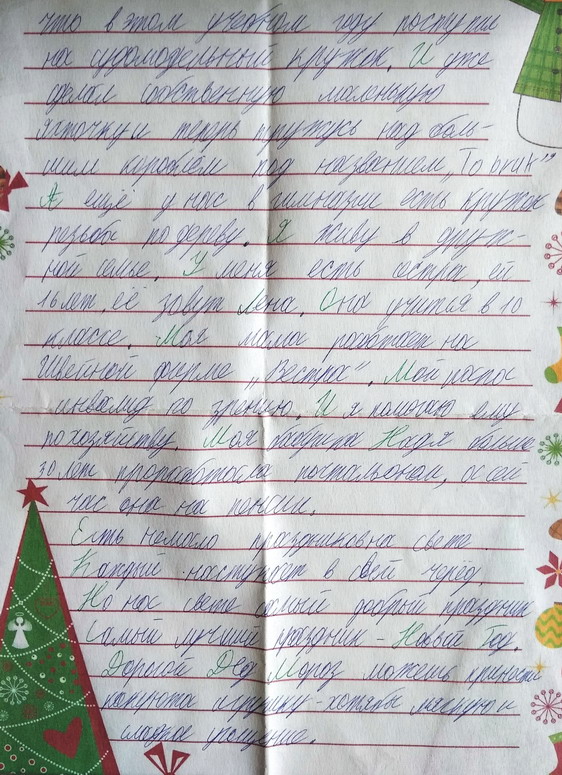 что в этом учебном году поступил
на судомодельный кружок. И уже
сделал собственную маленькую
яхточку и теперь тружусь над боль-
шим кораблём под названием „To bruk"
А ещё у нас в гимназии есть кружок
резьбы по дереву. Я живу в друж-
ной семье. У меня есть сестра, ей
16 лет, её зовут Лена. Она учится в 10
классе. Моя мама работает на
Швейной фирме „Вестра". Мой папа
инвалид по зрению. И я помогаю ему
по хозяйству. Моя бабушка Надя больше
30 лет проработала почтальоном, а сей
час она на пенсии.
Есть немало праздников на свете.
Каждый наступает в свой черёд.
Но на свете самый добрый праздник
Самый лучший праздник - Новый Год.
Дорогой Дед Мороз можешь принести
какую игрушку - хотябы мягкую и
сладкое угощение.